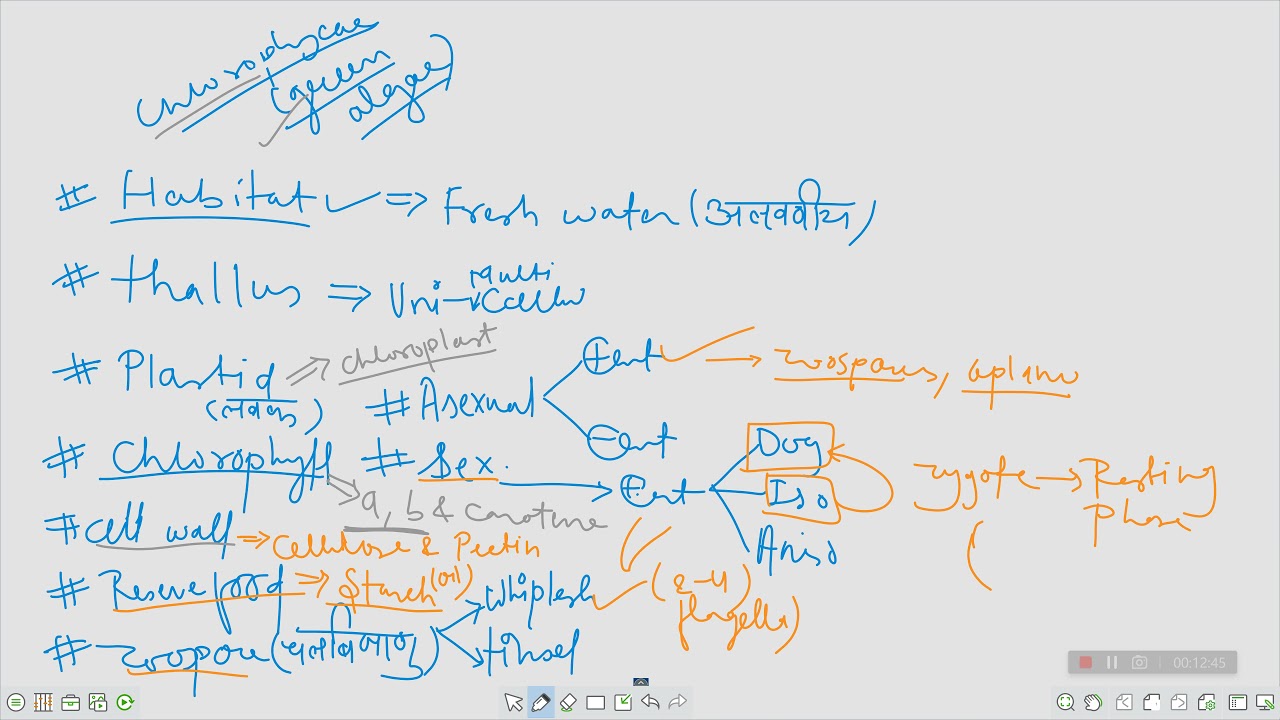 Chlorophyceae
(green
algae)
# Habitat => Fresh water (अलवणीय)
# thallus => Uni - Multi Cellular
# Plastid => chloroplast
(लवक)
# Asexual
⊕ent → zoospores, aplano
⊖ent
# Chlorophyll
a, b & carotene
# Sex. → ⊕ent
Oog
Iso
Aniso
zygote → Resting
Phase
(
# cell wall => Cellulose & Pectin
# Reserve food => Starch (oil)
# zoospore (चलबीजाणु)
Whiplash (2-4
flagella)
tinsel
00:12:45